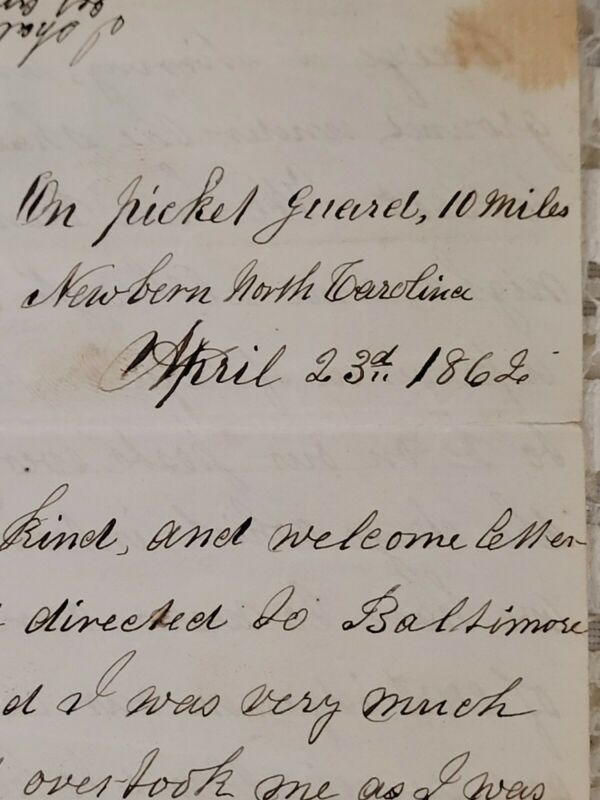 I shal
On picket guard, 10 miles
Newbern North Carolina
April 23d 1862
kind, and welcome letter
directed to Baltimore
d I was very much
overtook me as I was